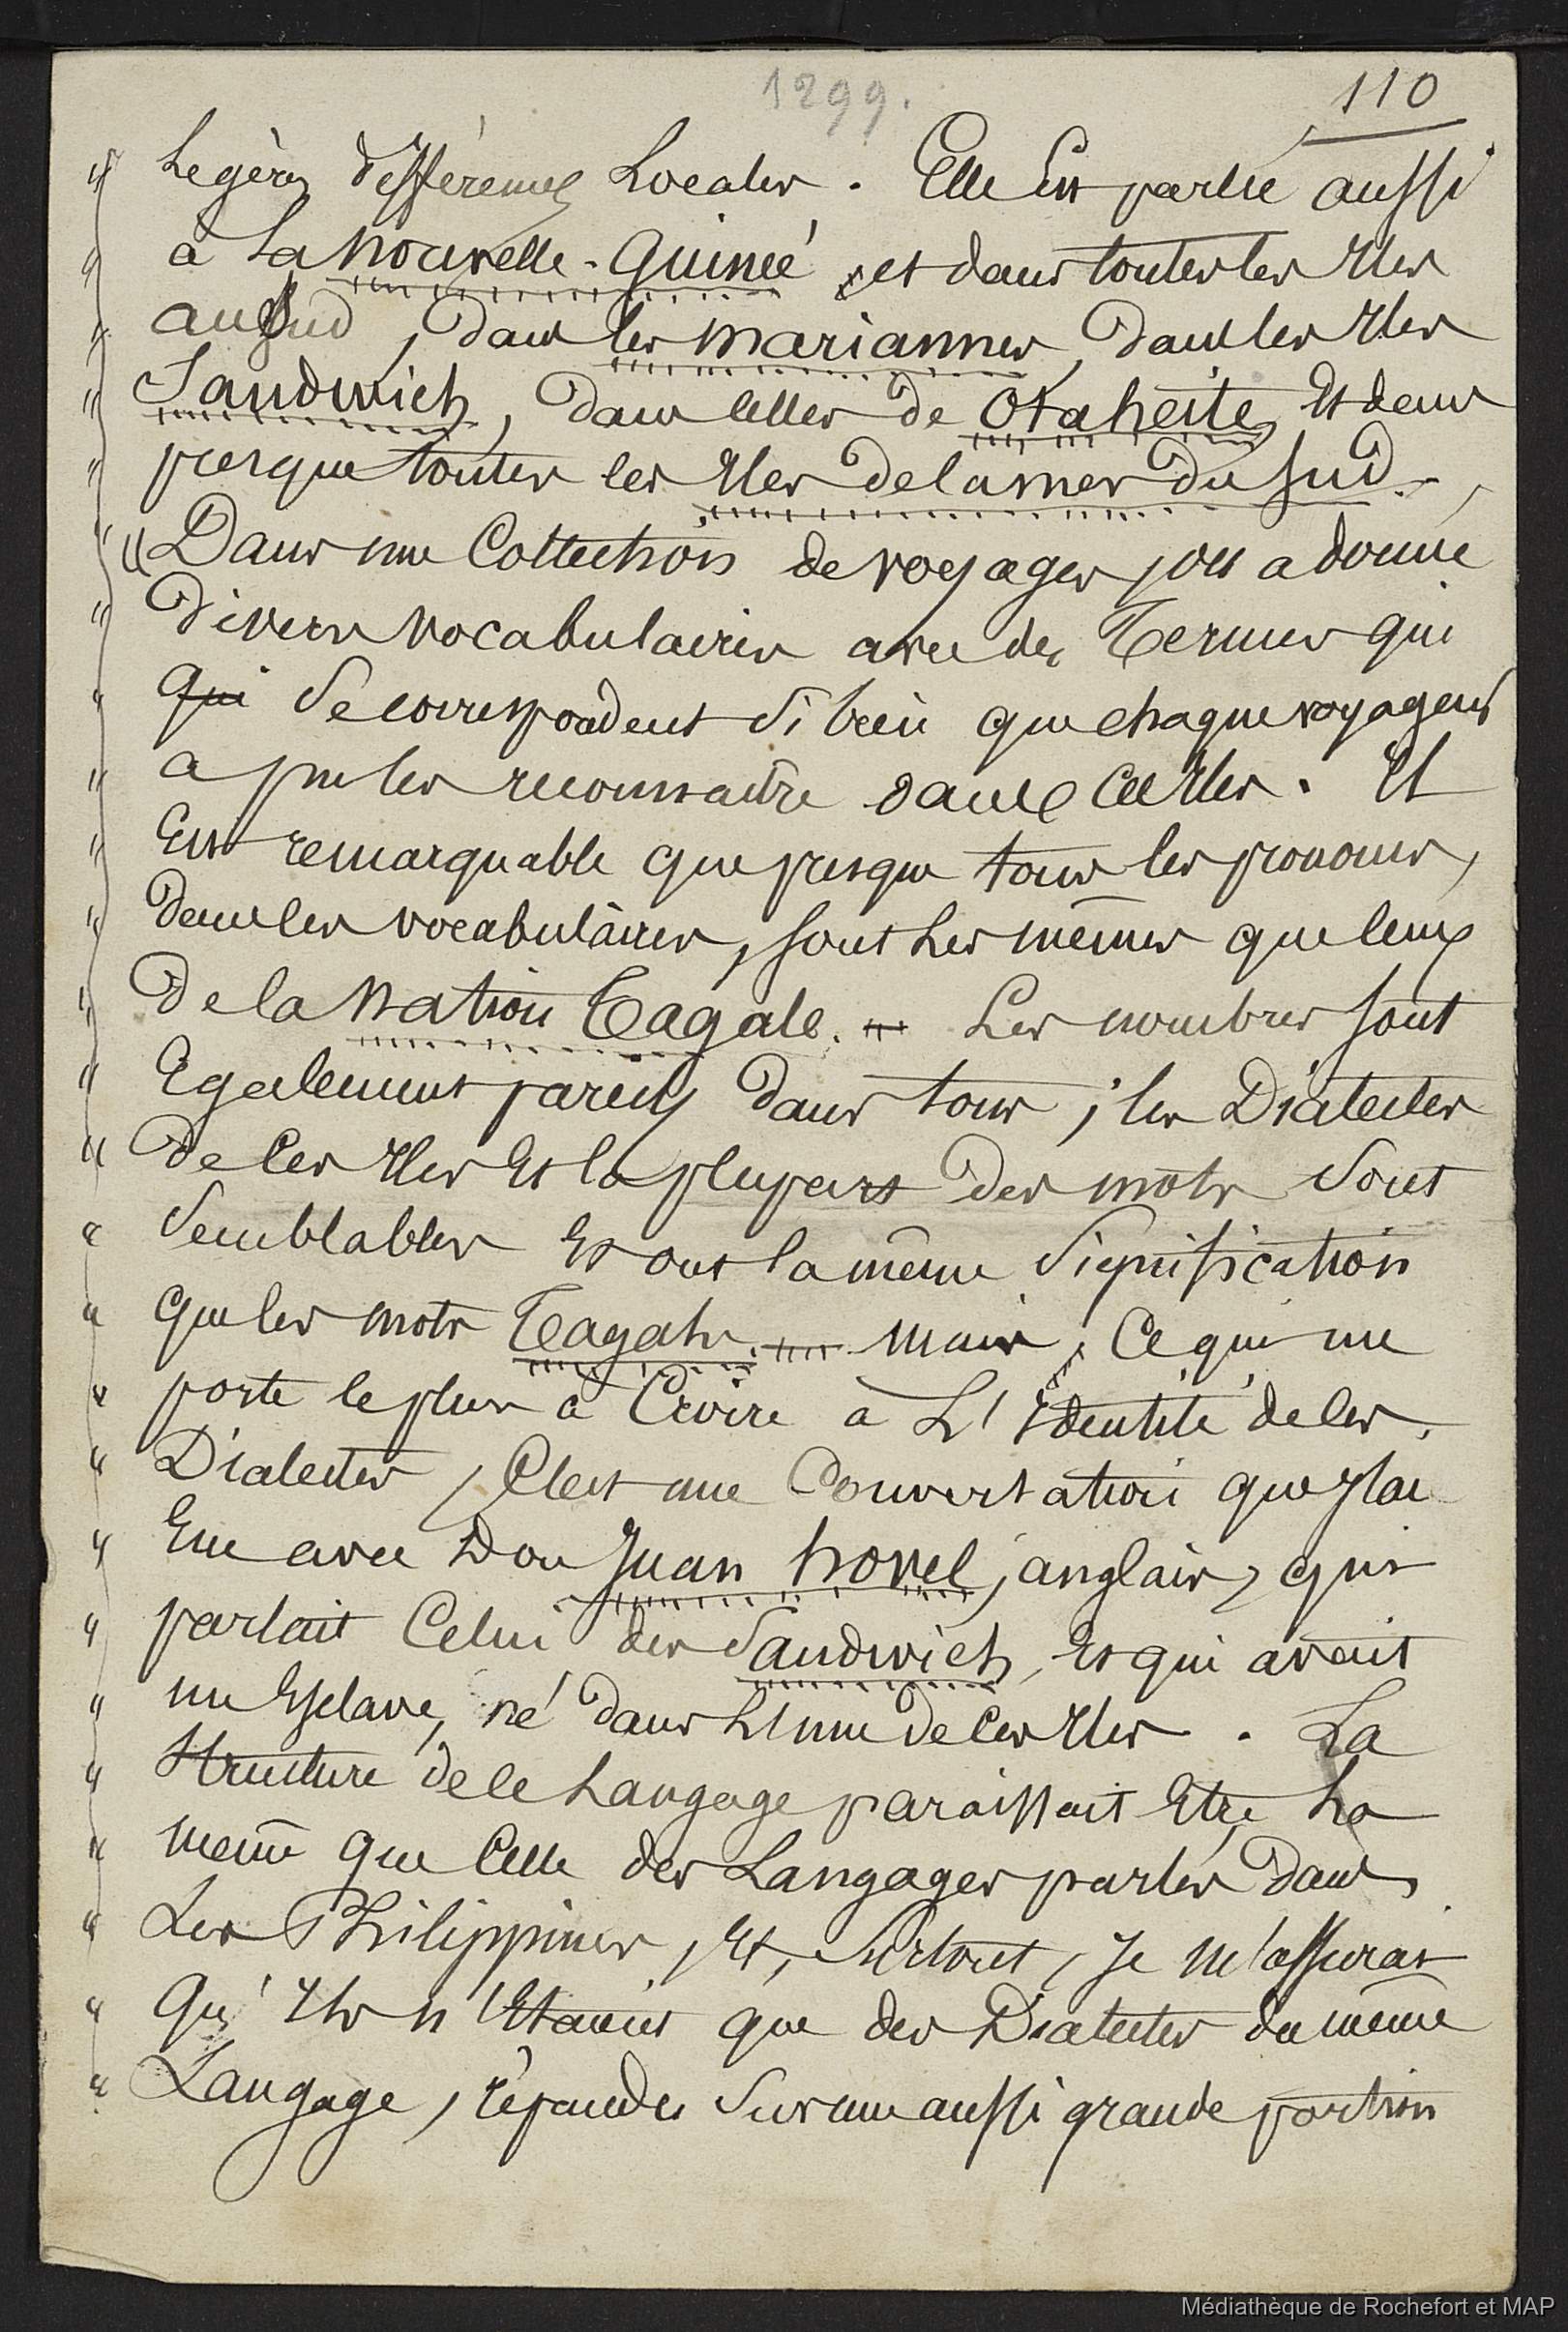 1299.
110
" Légères différences Locales. Elle Est parlée aussi
" à La Nouvelle-Guinée, et dans toutes les Iles
" au Sud, dans les Mariannes, dans les Iles
" Sandwich, dans Celles de Otaheite, Et dans
" presque toutes les Iles de la mer du Sud.
" " Dans une Collection de voyages, on a donné
" divers vocabulaires avec des Termes qui
" qui Se correspondent Si bien que chaque voyageur
" a pu les reconnaître dans Ces Iles. Il
" Est remarquable que presque tous les pronoms,
" dans les vocabulaires, sont Les mêmes que ceux
" de la Nation Tagale. Les nombres sont
" Egalement pareils dans tous ; les Dialectes
" de Ces Iles Et la plupart des mots Sont
" Semblables Et ont la même Signification
" que les mots Tagals. Mais, Ce qui me
" porte le plus à Croire à L'Identité de Ces
" Dialectes, C'est une Conversation que J'ai
" Eue avec Don Juan hovel, anglais, qui
" parlait Celui des Sandwich, Et qui avait
" un Esclave, né dans L'une de Ces Iles. La
" Structure de ce Langage paraissait Etre La
" même que Celle des Langages parlés dans
" Les Philippines, Et, Surtout, Je m'assurai
" Qu'Ils n'Etaient que des Dialectes du même
" Langage, répandus Sur une aussi grande portion
Médiathèque de Rochefort et MAP